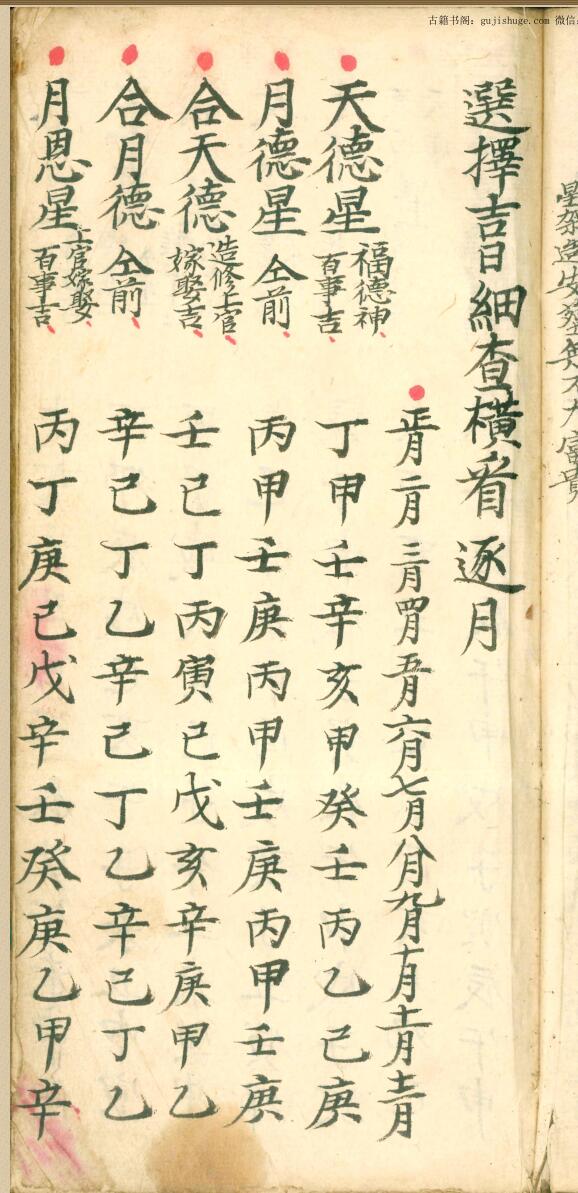 古籍书阁：gujishuge.com 微信
選擇吉日細查橫看逐月
正月二月三月四月五月六月七月八月九月十月十一月十二月
天德星 福德神 百事吉 丁甲壬辛亥甲癸壬丙乙己庚
月德星 仝前 丙甲壬庚丙甲壬庚丙甲壬庚
合天德 造修上官 嫁娶吉 壬巳丁丙寅巳戊亥辛庚甲乙
合月德 仝前 辛己丁乙辛己丁乙辛己丁乙
月恩星 上官嫁娶 百事吉 丙丁庚己戊辛壬癸庚乙甲辛